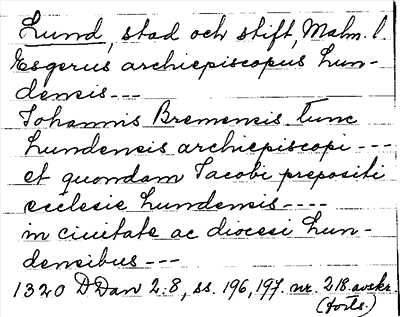 Lund, stad och stift, Malm. l.
Esgerus archiepiscopus Lun-
densis ---
Johannis Bremensis tunc
Lundensis archiepiscopi ---
et quondam Jacobi prepositi
ecclesie Lundensis ----
in ciuitate ac diocesi Lun-
densibus ---
1320 DDan 2:8, ss. 196, 197. nr. 218 avskr.
(forts.)